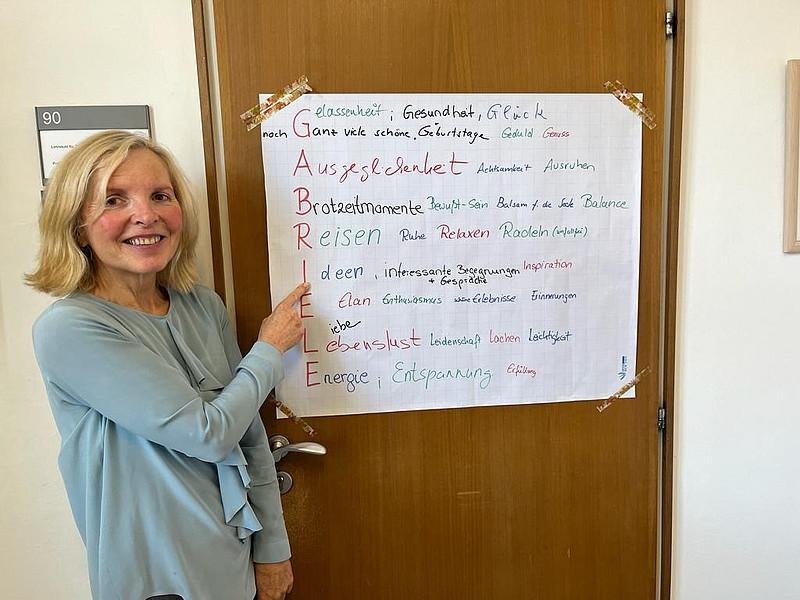 90
Gelassenheit ; Gesundheit, Glück
noch Ganz viele schöne Geburtstage Geduld Genuss
Ausgeglichenheit Achtsamkeit Ausruhen
Brotzeitmomente Bewußt-Sein Balsam f. die Seele Balance
Reisen Ruhe Relaxen Radeln (unfallfrei)
Ideen , interessante Begegnungen + Gespräche Inspiration
Elan Enthusiasmus Erlebnisse Erinnerungen
Liebe
Lebenslust Leidenschaft Lachen Leichtigkeit
Energie ; Entspannung Erfüllung